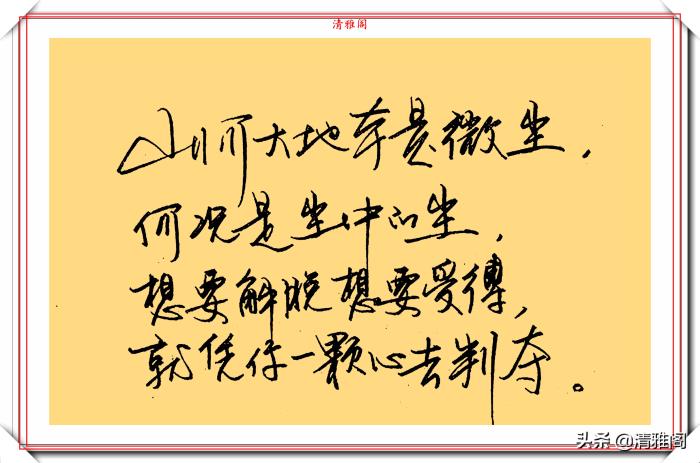 清雅阁
山河大地本是微尘，
何况是尘中的尘，
想要解脱想要受缚，
就凭你一颗心去判夺。
头条 @清雅阁